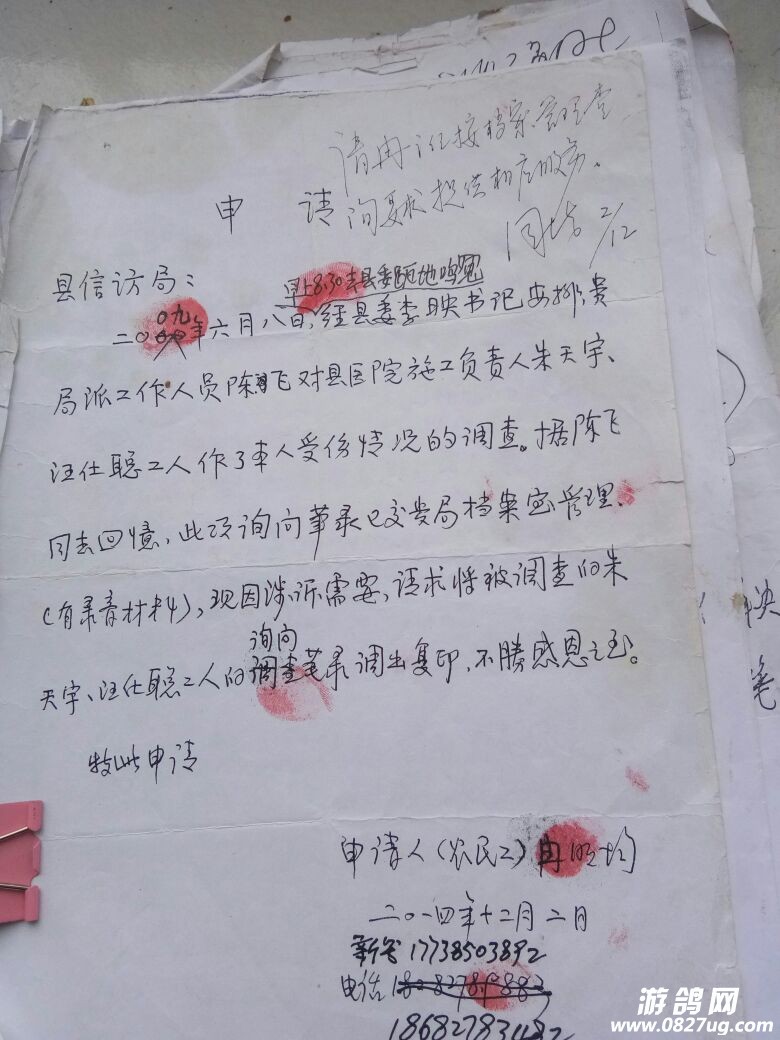 请冉主任按档案管理查
询要求提供相应服务。
2/12
申 请
县信访局：
早上8:30去县委跪地鸣冤
二00九年六月八日，经县委李映书记安排，贵
局派工作人员陈飞对县医院施工负责人朱天宇、
汪仕聪二人作了本人受伤情况的调查。据陈飞
同志回憶，此项询问笔录已交贵局档案室管理、
（有录音材料），现因涉诉需要，请求将被调查的朱
询问
天宇、汪仕聪二人的调查笔录调出复印，不勝感恩之至。
特此申请
申请人（农民工）冉
二〇一四年十二月二日
新号 17738503892
电话
游鸽网
www.0827ug.com